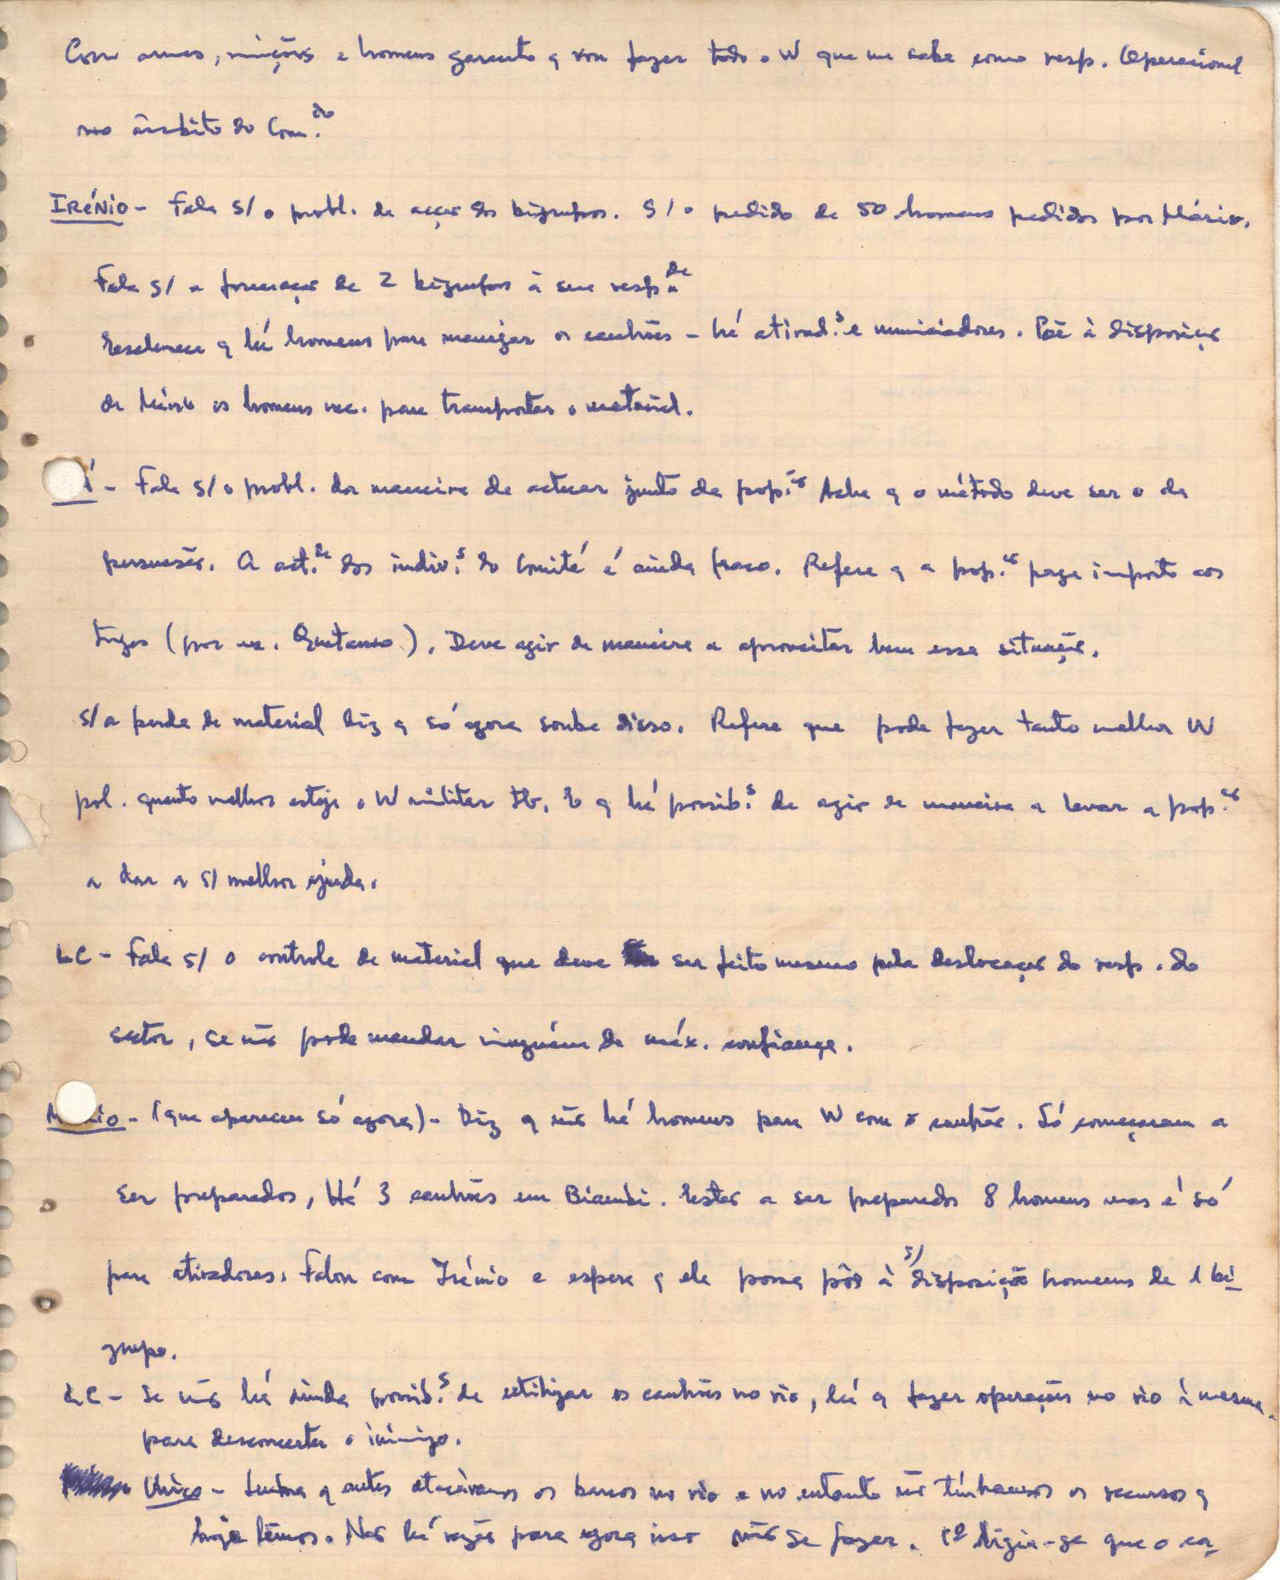 Com armas, munições e homens garanto q vou fazer todo o W que me cabe como resp. Operacional
no âmbito do Com.do
IRÉNIO - Fala s/ o probl. da acção dos bigrupos. S/ o pedido de 50 homens pedidos por Mário.
Fala s/ a formação de 2 bigrupos à sua resp.de
Esclarece q há homens para manejar os canhões - há atirad.s e municiadores. Põe à disposição
de Mário os homens nec. para transportar o material.
- Fala s/ o probl. da maneira de actuar junto da pop.ão Acha q o método deve ser o da
persuasão. A act.de dos indiv.s do Comité é ainda fraca. Refere q a pop.ão paga imposto aos
tugas (por ex. Quetamo). Deve agir de maneira a aproveitar bem essa situação.
S/ a perda de material diz q só agora soube disso. Refere que pode fazer tanto melhor W
pol. quanto melhor esteja o W militar tb, q há possib.s de agir de maneira a levar a pop.ão
a dar a s/ melhor ajuda.
LC - Fala s/ o controle de material que deve ser feito mesmo pela deslocação do resp. do
sector, se não pode mandar ninguém de máx. confiança.
- (que apareceu só agora) - Diz q não há homens para W com o canhão. Só começaram a
ser preparados, Há 3 canhões em Biambi. Estão a ser preparados 8 homens mas é só
para atiradores. Falou com Irénio e espera q ele possa pôr à s/ disposição homens de 1 bi-
grupo.
LC - Se não há ainda possib.s de utilizar os canhões no rio, há q fazer operações no rio à mesma
para desconcertar o inimigo.
Chico - Lembra q antes atacávamos os barcos no rio e no entanto não tínhamos os recursos q
hoje temos. Não há razão para agora isso não se fazer. 1º dizia-se que o ca-